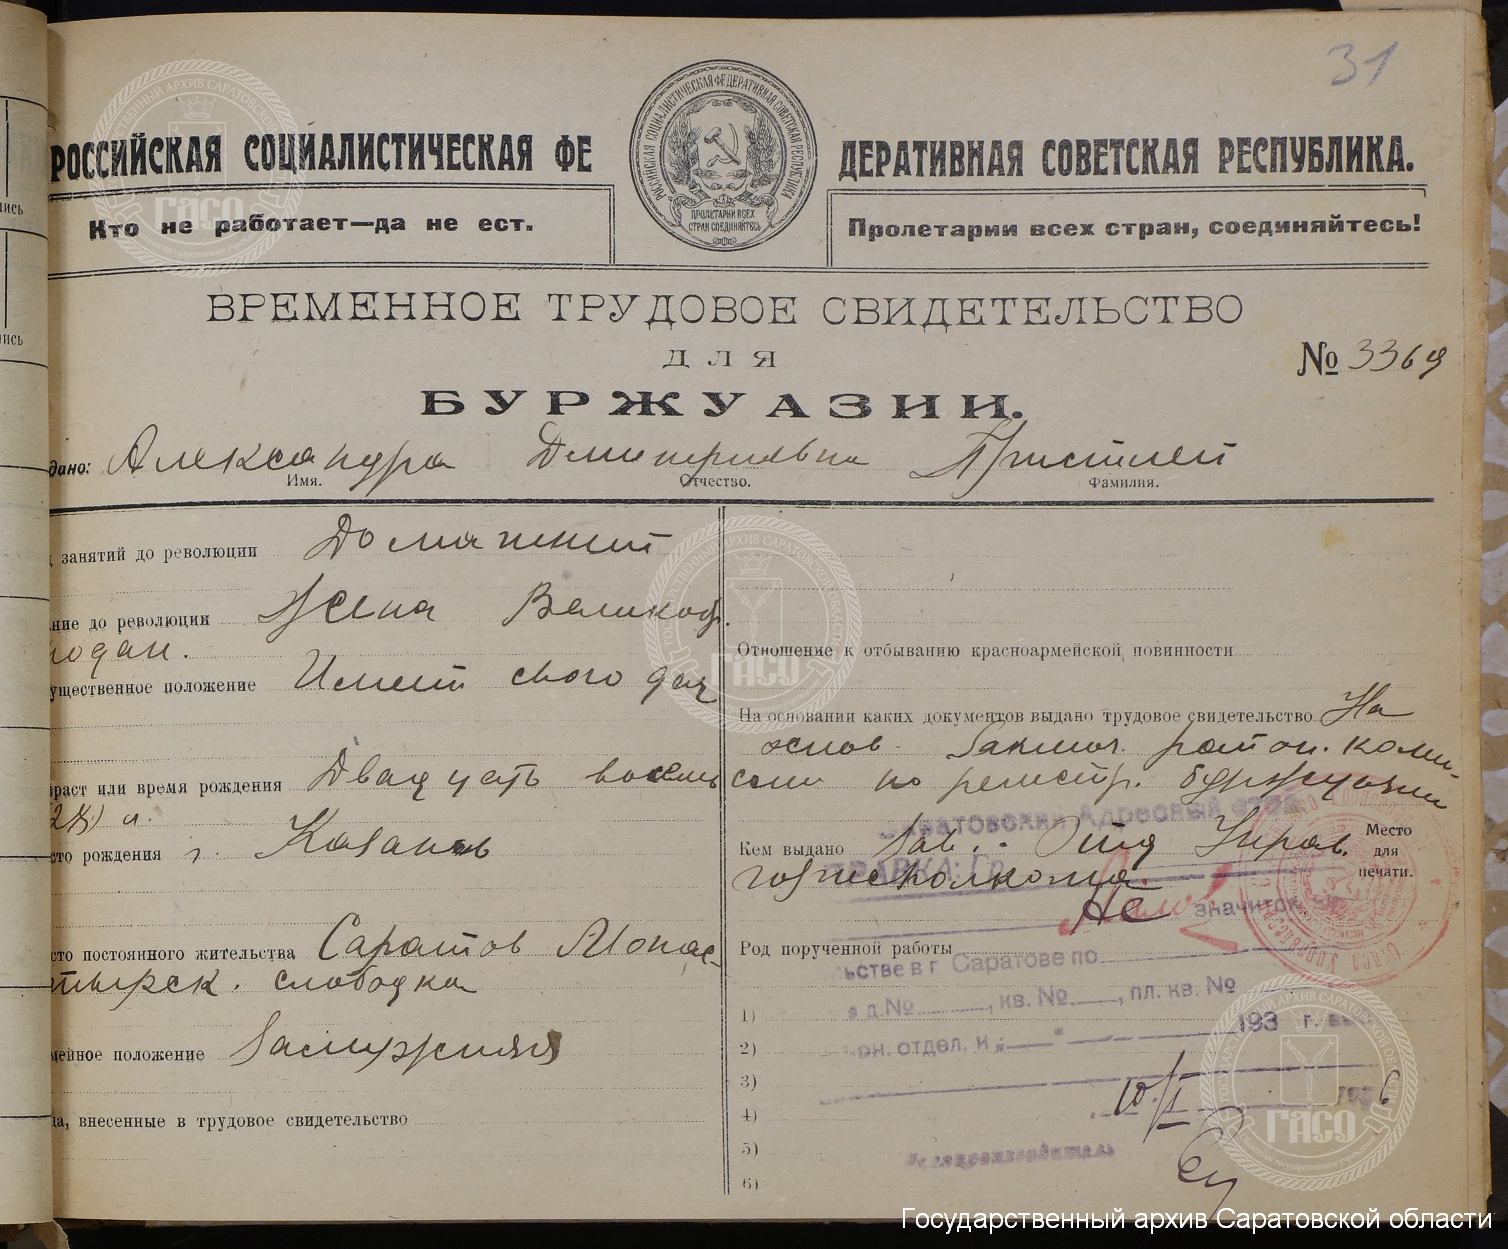 31
РОССИЙСКАЯ СОЦИАЛИСТИЧЕСКАЯ ФЕ ДЕРАТИВНАЯ СОВЕТСКАЯ РЕСПУБЛИКА.
РОССИЙСКАЯ СОЦИАЛИСТИЧЕСКАЯ ФЕДЕРАТИВНАЯ СОВЕТСКАЯ РЕСПУБЛИКА
ПРОЛЕТАРИИ ВСЕХ
СТРАН СОЕДИНЯЙТЕСЬ
Кто не работает—да не ест.
Пролетарии всех стран, соединяйтесь!
ВРЕМЕННОЕ ТРУДОВОЕ СВИДЕТЕЛЬСТВО
ДЛЯ
№ 3369
БУРЖУАЗИИ.
дано: Александра Дмитриевна
Имя. Отчество. Фамилия.
занятий до революции
ние до революции Жена Великоб.
подан.
ущественное положение Имеет свого дом
раст или время рождения Двадцать восемь
(28) л.
сто рождения г. Казань
сто постоянного жительства Саратов Монас-
тырск. слободка
мейное положение Замужняя
да, внесенные в трудовое свидетельство
Отношение к отбыванию красноармейской повинности
На основании каких документов выдано трудовое свидетельство На
основ. заключ. район. коми-
сии по регистр. буржуазии
Саратовский Адресный стол
Кем выдано Зав. Отд Управ.
горисполкома
Место
для
печати.
СПРАВКА: Гр.
не значится
Род порученной работы
ьстве в г. Саратове по
д. №, кв. №, пл. кв. №
193 г.
он. отдел. и
1)
2)
3)
4)
5)
6)
10/I 6
Делопроизводитель
ГАСО
ГАСО
ГАСО
Государственный архив Саратовской области